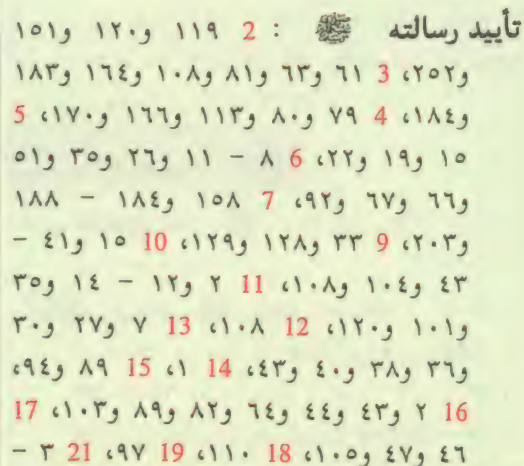 تأييد رسالته ﷺ : 2 ١١٩ و١٢٠ و١٥١
و٢٥٢، 3 ٦١ و٦٣ و٨١ و١٠٨ و١٦٤ و١٨٣
و١٨٤، 4 ٧٩ و٨٠ و١١٣ و١٦٦ و١٧٠، 5
١٥ و١٩ و٢٢، 6 ٨ – ١١ و٢٦ و٣٥ و٥١
و٦٦ و٦٧ و٩٢، 7 ١٥٨ و١٨٤ – ١٨٨
و٢٠٣، 9 ٣٣ و١٢٨ و١٢٩، 10 ١٥ و٤١ –
٤٣ و١٠٤ و١٠٨، 11 ٢ و١٢ – ١٤ و٣٥
و١٠١ و١٢٠، 12 ١٠٨، 13 ٧ و٢٧ و٣٠
و٣٦ و٣٨ و٤٠ و٤٣، 14 ١، 15 ٨٩ و٩٤،
16 ٢ و٤٣ و٤٤ و٦٤ و٨٢ و٨٩ و١٠٣، 17
٤٦ و٤٧ و١٠٥، 18 ١١٠، 19 ٩٧، 21 ٣ –